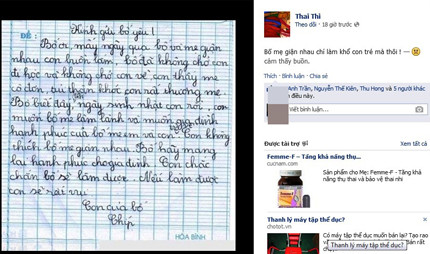 ĐỀ:
Kính gửi bố yêu!
Bố ơi, mấy ngày qua bố và mẹ giận
nhau con buồn lắm, bố đã không chở con
đi học và không chở con về con thấy mẹ
cô đơn, thân khóc con rất thương mẹ.
Bố biết đấy, ngày sinh nhật con rồi, con
muốn bố mẹ làm lành và muốn gia đình
hạnh phúc của bố mẹ em và con. Con không
thích bố mẹ giận nhau. Bố hãy mang
lại hạnh phúc cho gia đình. Con chắc
chắn bố sẽ làm được. Nếu làm được
con sẽ rất vui
Con của bố
Chíp
HÒA BÌNH
Thai Thi
Theo dõi · 18 giờ trước
Bố mẹ giận nhau chỉ làm khổ con trẻ mà thôi ! —
cảm thấy buồn.
Thích · Bình luận · Chia sẻ
Anh Trần, Nguyễn Thế Kiên, Thu Hong và 5 người khác
điều này.
Viết bình luận...
Được tài trợ
Xem tất cả
Femme-F – Tăng khả năng thụ...
cucham.com
Sản phẩm cho Mẹ: Femme-F – Tăng
khả năng thụ thai và bảo vệ thai nhi
Thanh lý máy tập thể dục?
chotot.vn
Có máy tập thể dục muốn bán lại? Tạo rao
Thanh lý máy tập thể dục?